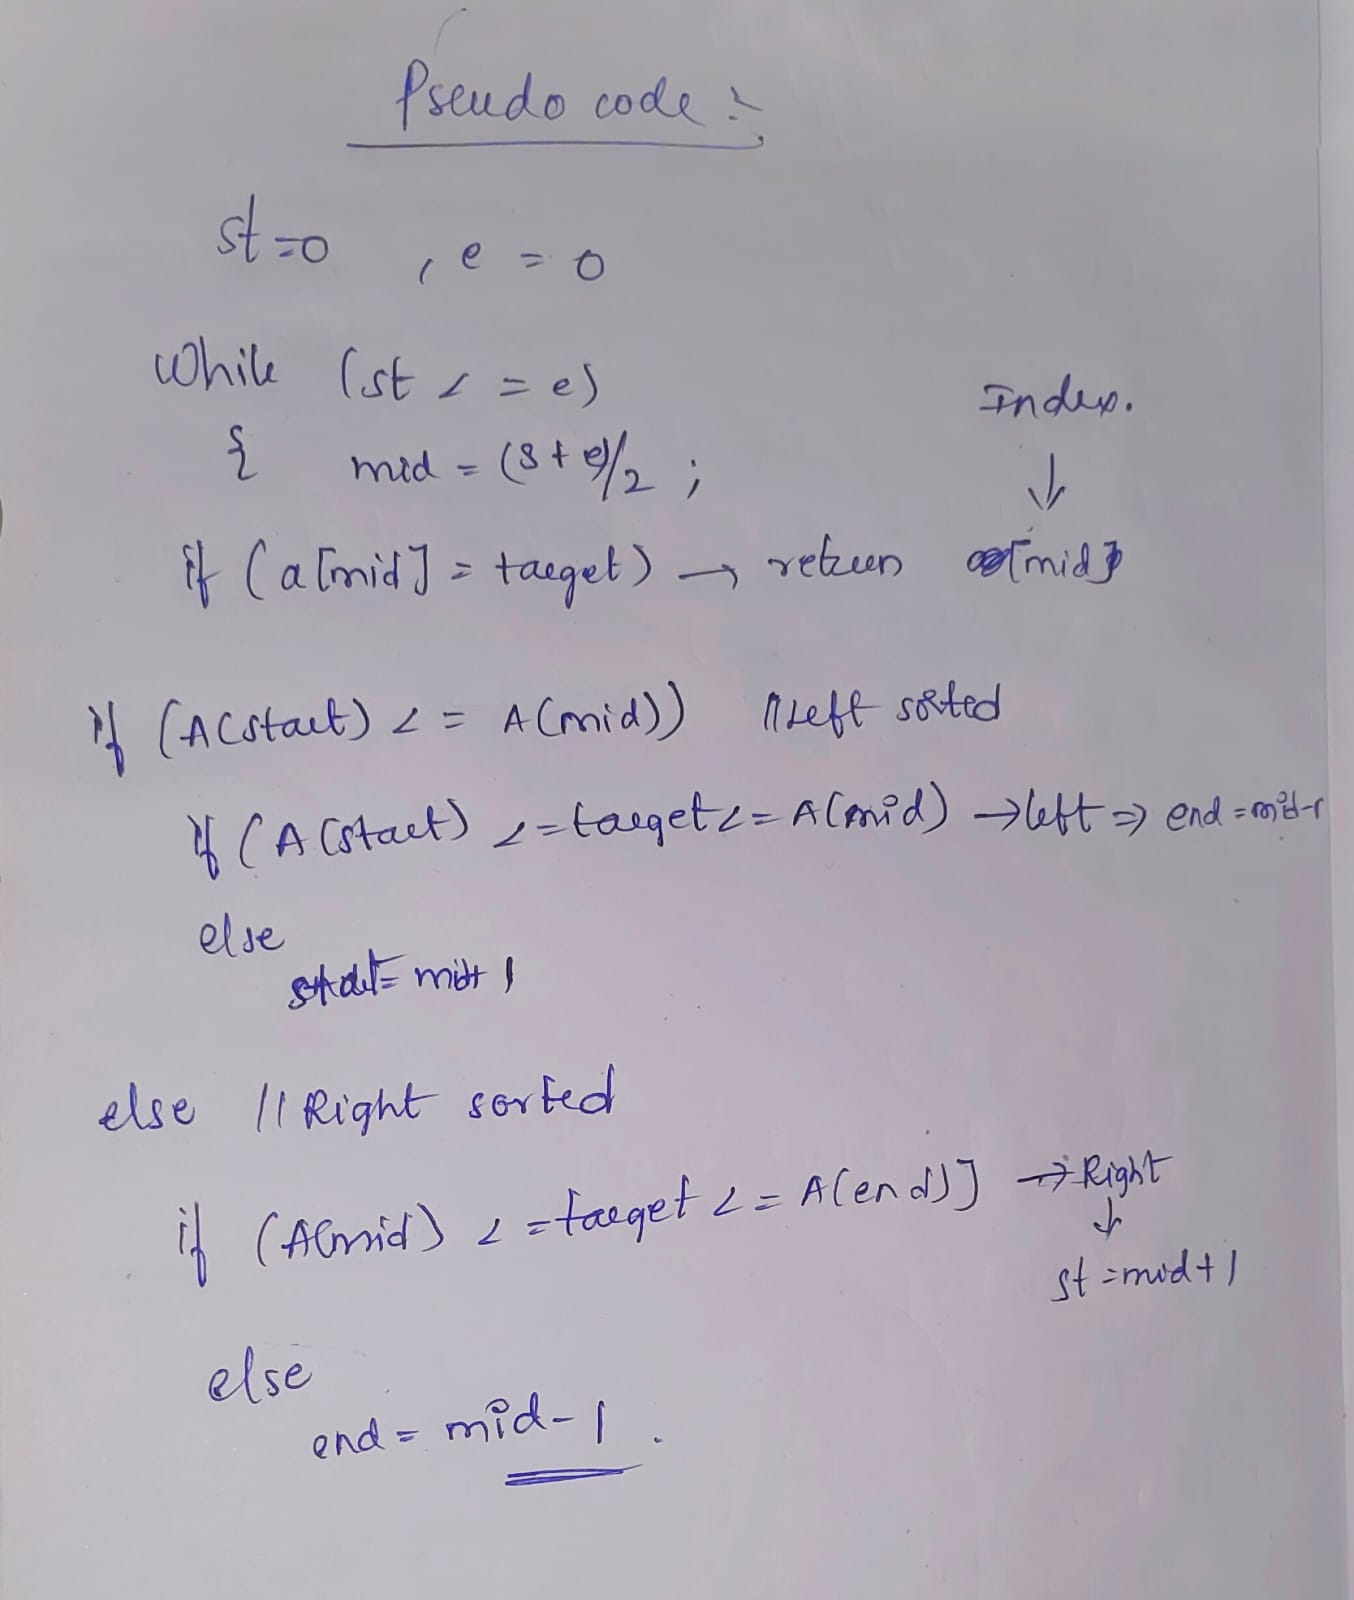 Pseudo code :-
st=0 , e = 0
while (st <= e)
{ mid = (s+e)/2 ;
Index.
↓
if (a[mid] = target) → return [mid]
if (A(start) <= A(mid)) // Left sorted
if (A(start) <= target <= A(mid) → left ⇒ end = mid-1
else
start = mid+1
else // Right sorted
if (A(mid) <= target <= A(end)] → Right
↓
st = mid+1
else
end = mid-1.